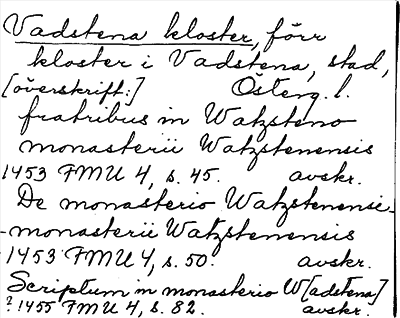 Vadstena kloster, förr
kloster i Vadstena, stad,
[överskrift:] Österg. l.
fratribus in Watzsteno
monasterii Watzstenensis
1453 FMU 4, s. 45. avskr.
De monasterio Watzstenensi
-monasterii Watzstenensis
1453 FMU 4, s. 50. avskr.
Scriptum in monasterio W[adstena]
? 1455 FMU 4, s. 82. avskr.